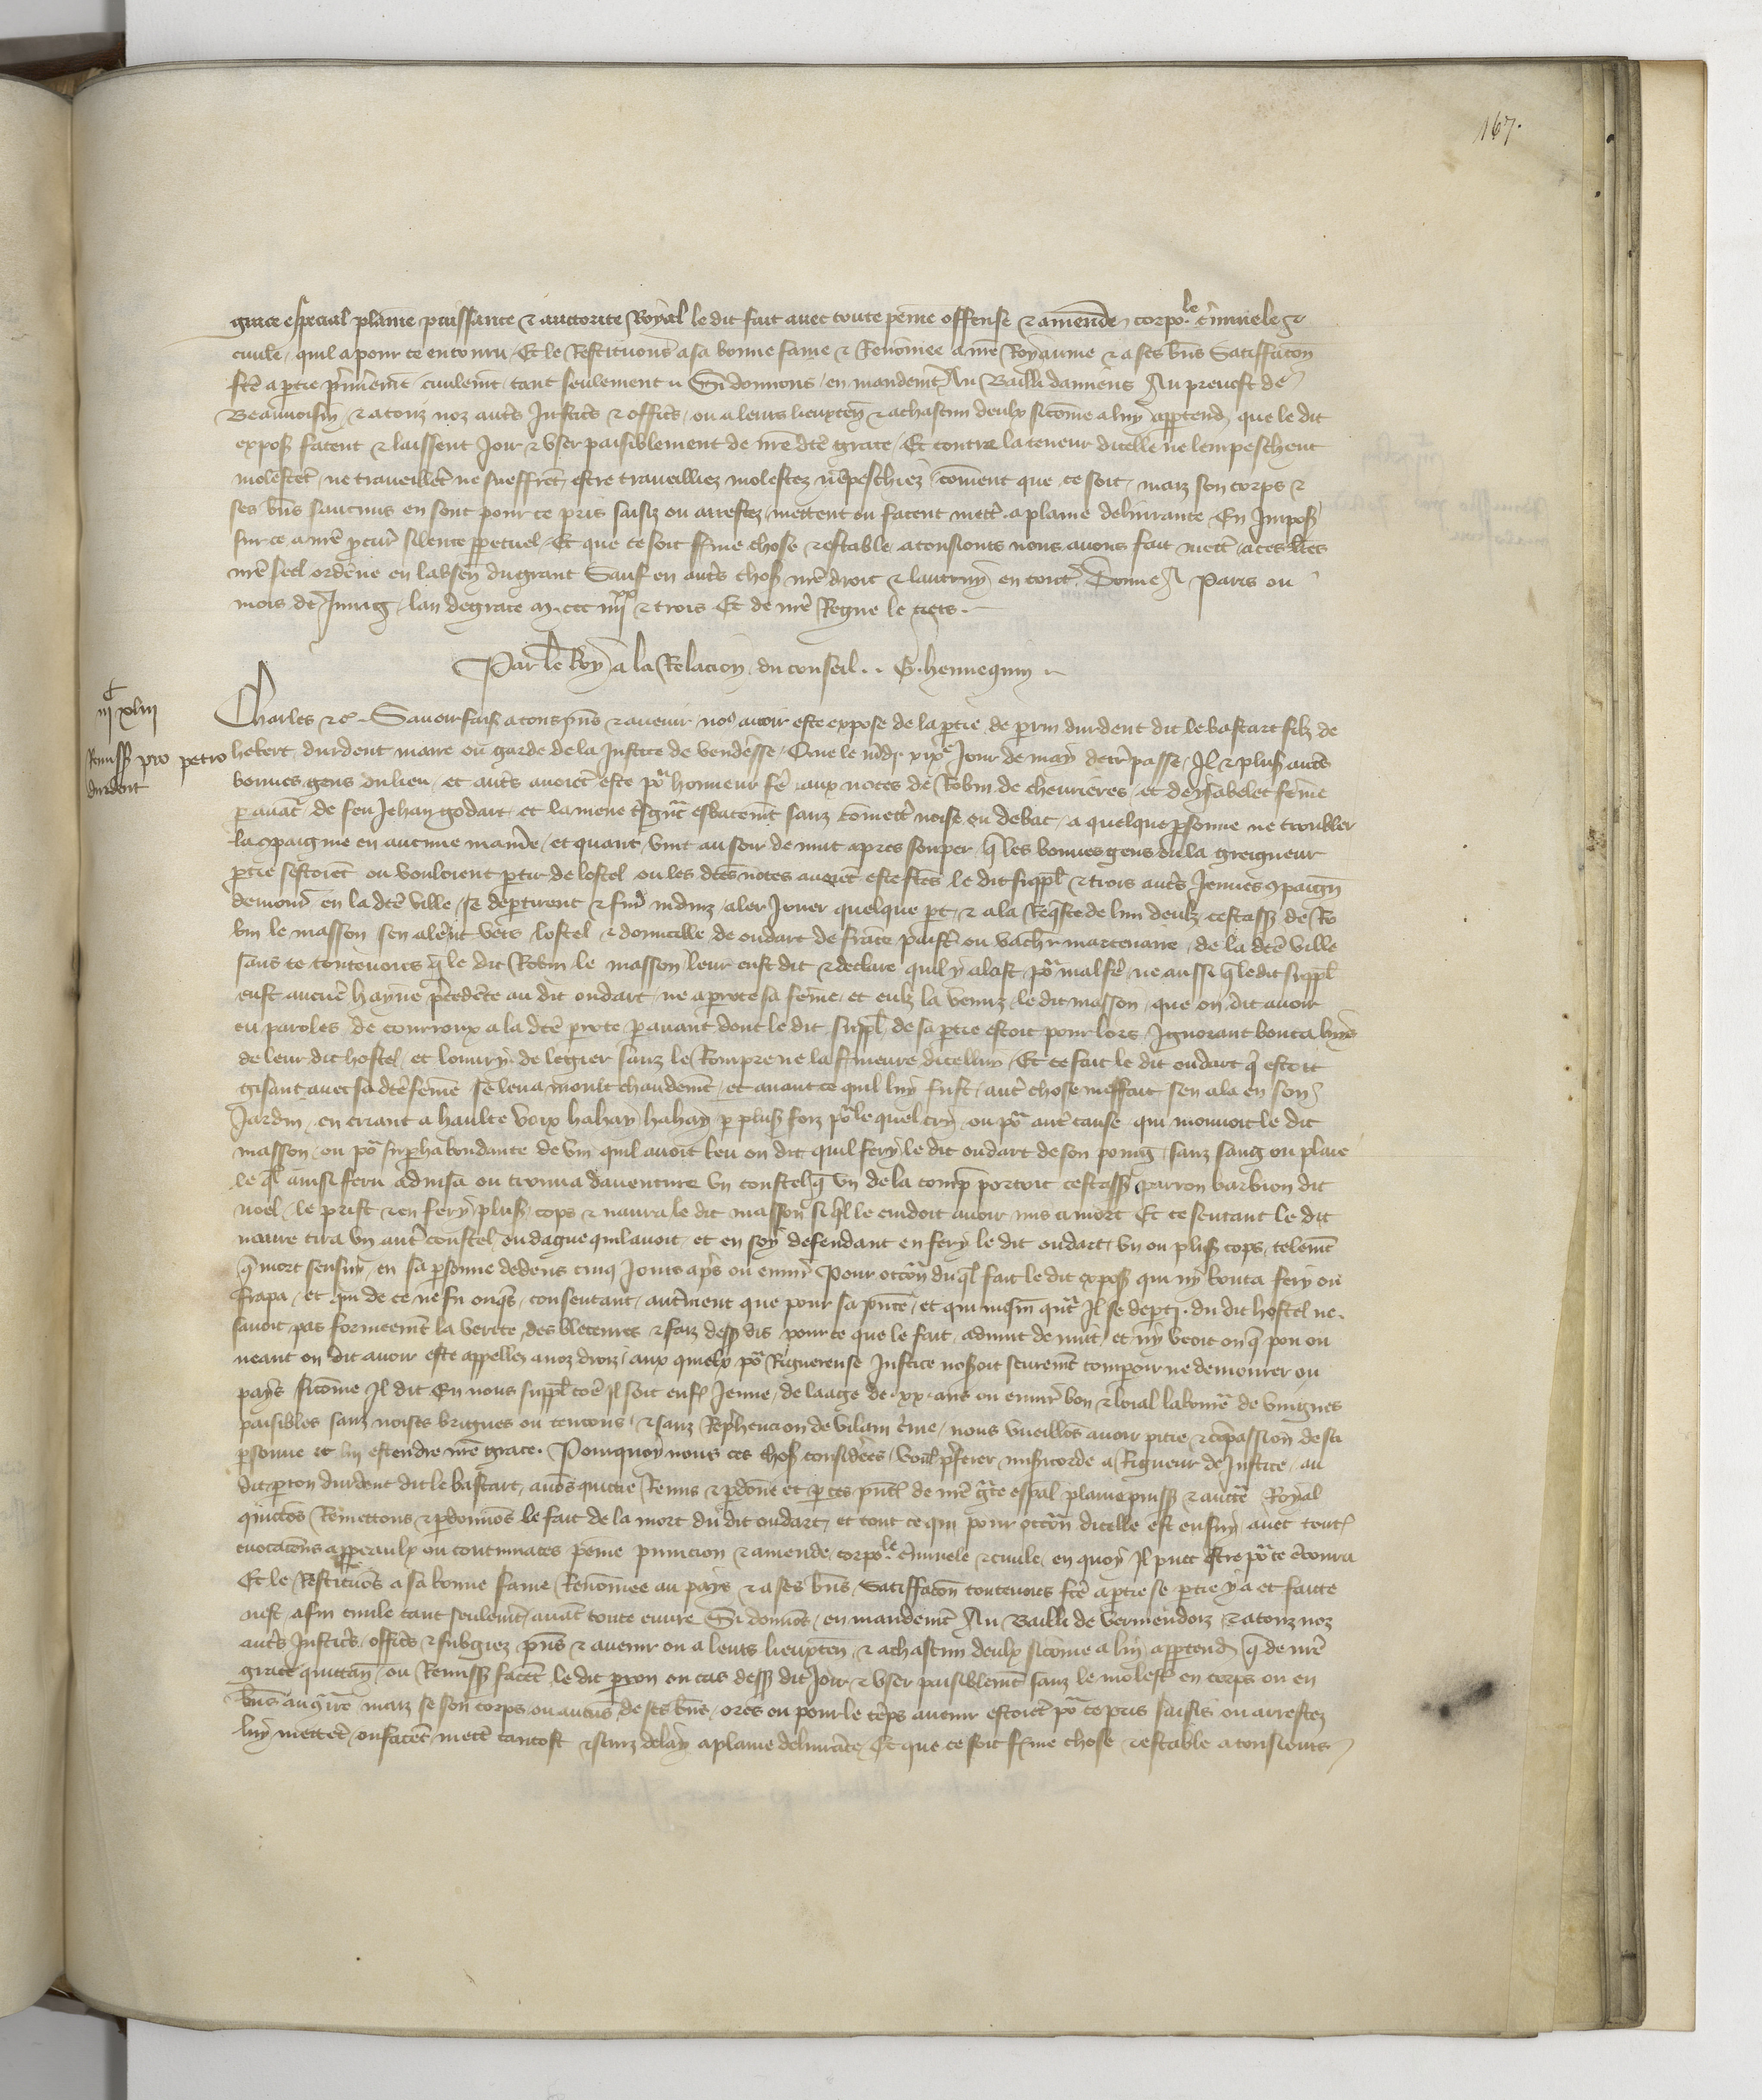 167.
grace especial plaine puissance et auctorite Royal le dit fait avec toute peine offense et amende corpo.le c'iminele et
civile, quil a pour ce encouru, Et le Restituons a sa bonne fame et Renomee a nre Royaume et a ses bn's Satiffacon
fc'e a partie p'mierem't civilem't tant seulement Si donnons en mandem't Au Bailli damiens Au prevost de
Beauvoisin, et a touz noz autres Justic's et offic's, ou a leurs lieuxten' et a chascun deulx sicome a luy appartend' que le dit
expos' facent et laissent Joir et user paisiblement de nre dce grace, Et contre la teneur dicelle ne lempeschent
molestent, ne traveillent ne sueffrent, estre travailliez molestez n'empeschiez, coment que ce soit, maiz son corps et
ses bn's saucuns en sont pour ce pris saisiz ou arrestez, mettent ou facent mett' a plaine delivrance, En Impos'
sur ce a nre p'cur' silence p'petuel, Et que ce soit ferme chose et estable a tousiours nous avons fait mett' a ces l'res
nre seel ordene en labsen' du grant Sauf en aut's chos' nre droit et lautruy en tout' Donne A Paris ou
mois de Juing, lan de grace m. ccc iiii xx et trois Et de nre Regne le tiers.
Par le Roy a la Relacion du conseil. . G. hennequin
iii c xliii
Remiss' pro petro durdent
Charles etc. Savoir faisz a tous p'ns et avenir, no' avoir este expose de la p'tie de perrin durdent dit le bastart filz de
hebert durdent maire ou garde de la Justice de vendesse, Que le mardi xix e Jour de may derr' passe, Il et plus' aut's
bonnes gens du lieu, et aut's avoient este po' honneur fe' aux noces de Robin de chevrieres, et de ysabelet feme
p'avat' de feu Jehan godart, et la mene esbatem't sanz comett' noise ou debat, a quelque p'sonne ne troubler
la compaignie en aucune maniere, et quant vint au soir de nuit apres souper, q' les bonnes gens ou la greigneur
p'tie sestoient ou vouloient p'tir de lostel ou les dces noces avoient este fc'es le dit suppl' et trois aut's Jennes compaign'
demour' en la dce ville, se departirent et aler Jouer quelque p't, et a la Req'ste de lun deulx, cestass' de Ro
bin le masson sen alerent vers lostel et domicille de oudart de france de la dce ville
sans ce toutevoies q' le dit Robin le masson leur eust dit et declare quil y alast po' mal fe' ne aussi q' le dit suppl'
eust aucune hayne p'cedente au dit oudart, ne a perrote sa feme, et eulx la venuz, le dit masson, que on dit avoir
eu paroles de courroux a la dce perrote p'avant dont le dit suppl' de sa p'tie estoit pour lors Ignorant bouta luys
de leur dit hostel, et louvry de legier sanz le Rompre ne la fermeure dicelluy, Et ce fait le dit oudart q' estoit
gisant avec sa dce feme se leva moult chaudem't, et avant ce quil luy fust aut' chose meffait sen ala en son
Jardin, en criant a haulte voix hahay hahay p' plus' foiz po' le quel cry ou po' aut' cause qui mouvoit le dit
masson, ou po' superhabondance de vin quil avoit beu on dit quil fery le dit oudart de son poing, sanz sang ou plaie
le q'l ainsi feru advisa ou trouva daventure un coustel q' un de la comp' portoit cestass' perron barbion dit
noel, le prist et en fery plus' cops et navra le dit masson si q'l le cuidoit avoir mis a mort Et ce sentant le dit
navre tira un aut' coustel ou dague quil avoit, et en soy defendant en fery le dit oudart, un ou plus' cops, telem't
q' mort sensuy en sa p'sonne dedens cinq Jours ap's ou envir' Pour occ'on du q'l fait le dit expos' qui ny bouta fery ou
frapa, et qui de ce ne fu onq's consentant, aut'ment que pour sa p'nce, et qui Il se departy du dit hostel ne
savoit pas formeem't la verite des bleceures et faiz dess' dis pour ce que le fait advint de nuit, et ny veoit on q' pou ou
neant on dit avoir este appellez a noz droiz, aux quielx po' Riguereuse Justice nosoit seurem't comparoir ne demourer ou
pays sicome Il dit En nous suppl' come Il soit enf' Jenne, de laage de xx ans ou envir' bon et loial laboure' de vingnes
paisibles sanz noises brigues ou tencons, et sanz Reprehencion de vilain c'ime, nous vueillons avoir pitie et compassion de sa
p'sonne et luy estendre nre grace. Pourquoy nous ces chos' considerees, voul' p'ferer misericorde a Rigueur de Justice, au
dit perron durdent dit le bastart, avons quictie Remis et p'done et p' ces p'nt' de nre gre esp'al plaine puiss' et auct'e Royal
quictons Remettons et p'donnons le fait de la mort du dit oudart, et tout ce qui pour occ'on dicelle est ensuy, avec tout'
evocacions appeaulx ou contumaces peine punicion et amende corpo.le c'iminele et civile, en quoy Il puet estre po' ce encouru
Et le Restituons a sa bonne fame Renomee au pays et a ses bn's, Satiffacon toutevoies fc'e a p'tie se p'tie y a et faicte
nest, a fin civile tant seulem't, avant toute euvre Si donnons en mandem't Au Bailli de Vermendoiz, et a touz noz
aut's Justic's, offic's et subgiez p'ns et avenir ou a leurs lieuxten', et a chascun deulx sicome a luy appartend' q' de nre
grace quittan' ou Remiss' facent le dit perron ou cas dess' dit Joir et user paisiblem't sanz le molest' en corps ou en
bn's au contraire maiz se son corps, ou aucuns de ses bn's, ores ou pour le temps avenir estoient po' ce pris saisis ou arrestez
luy mettent, ou facent mett' tantost et sanz delay a plaine delivrance, Et que ce soit ferme chose et estable a tousiours